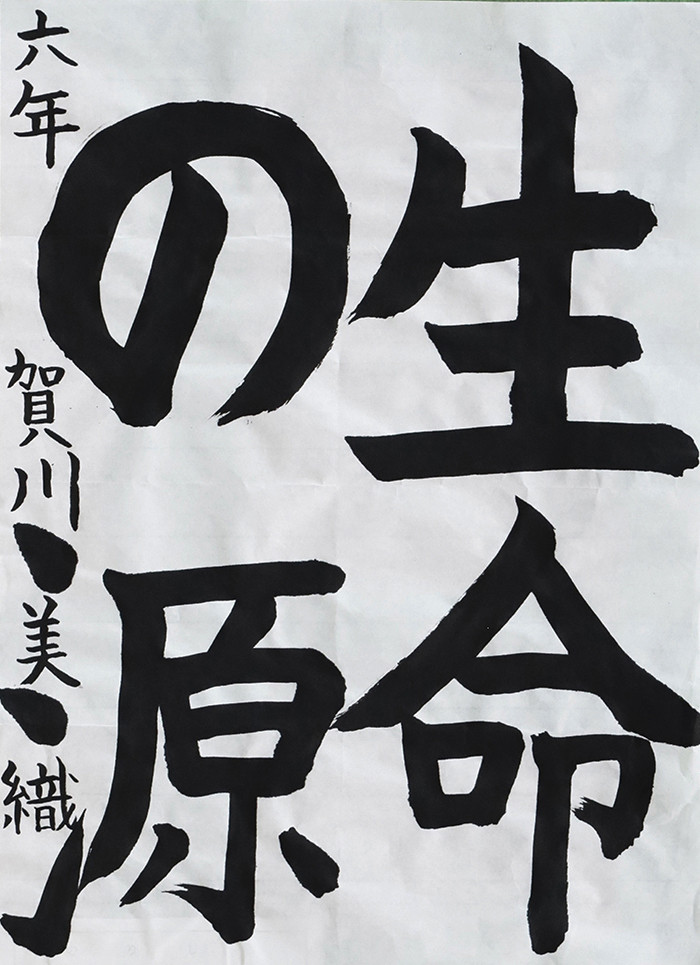 生命
の源
六年 賀川美織